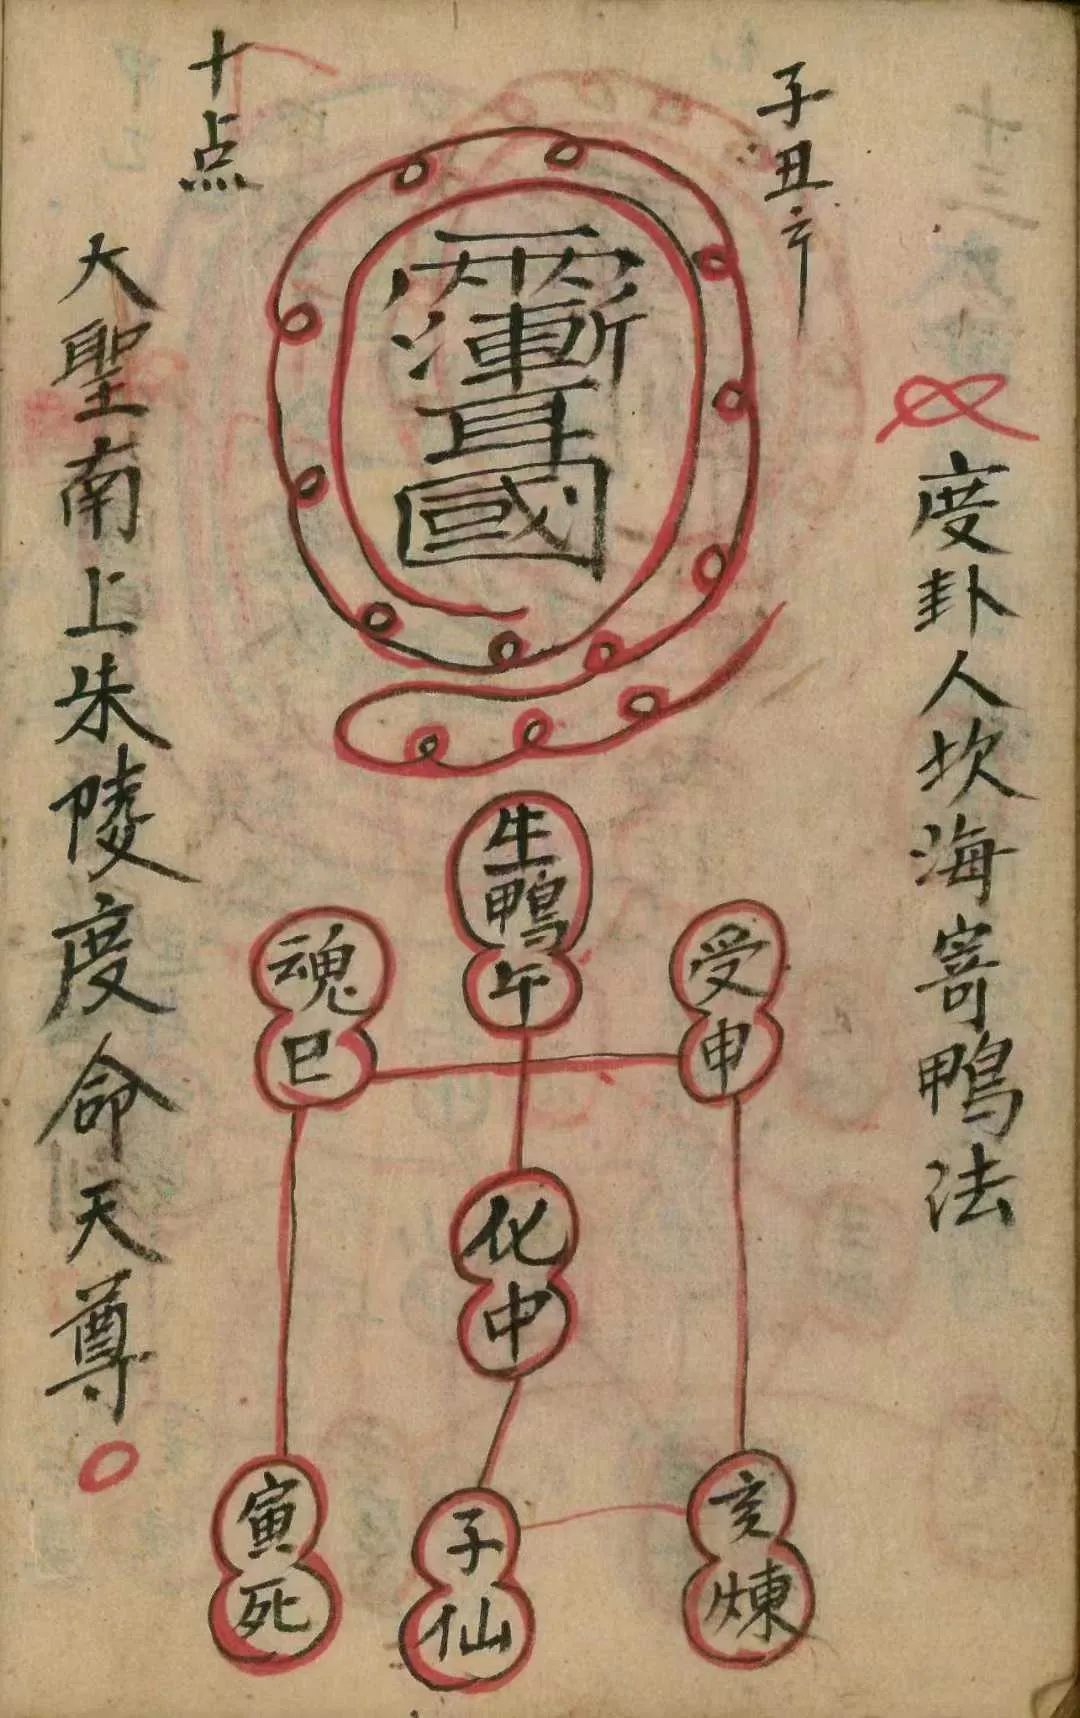 度卦人坎海寄鴨法
子丑亥
十点
大聖南上朱陵度命天尊
生鴨
午
魂
巳
受
申
化
中
寅
死
子
仙
亥
煉